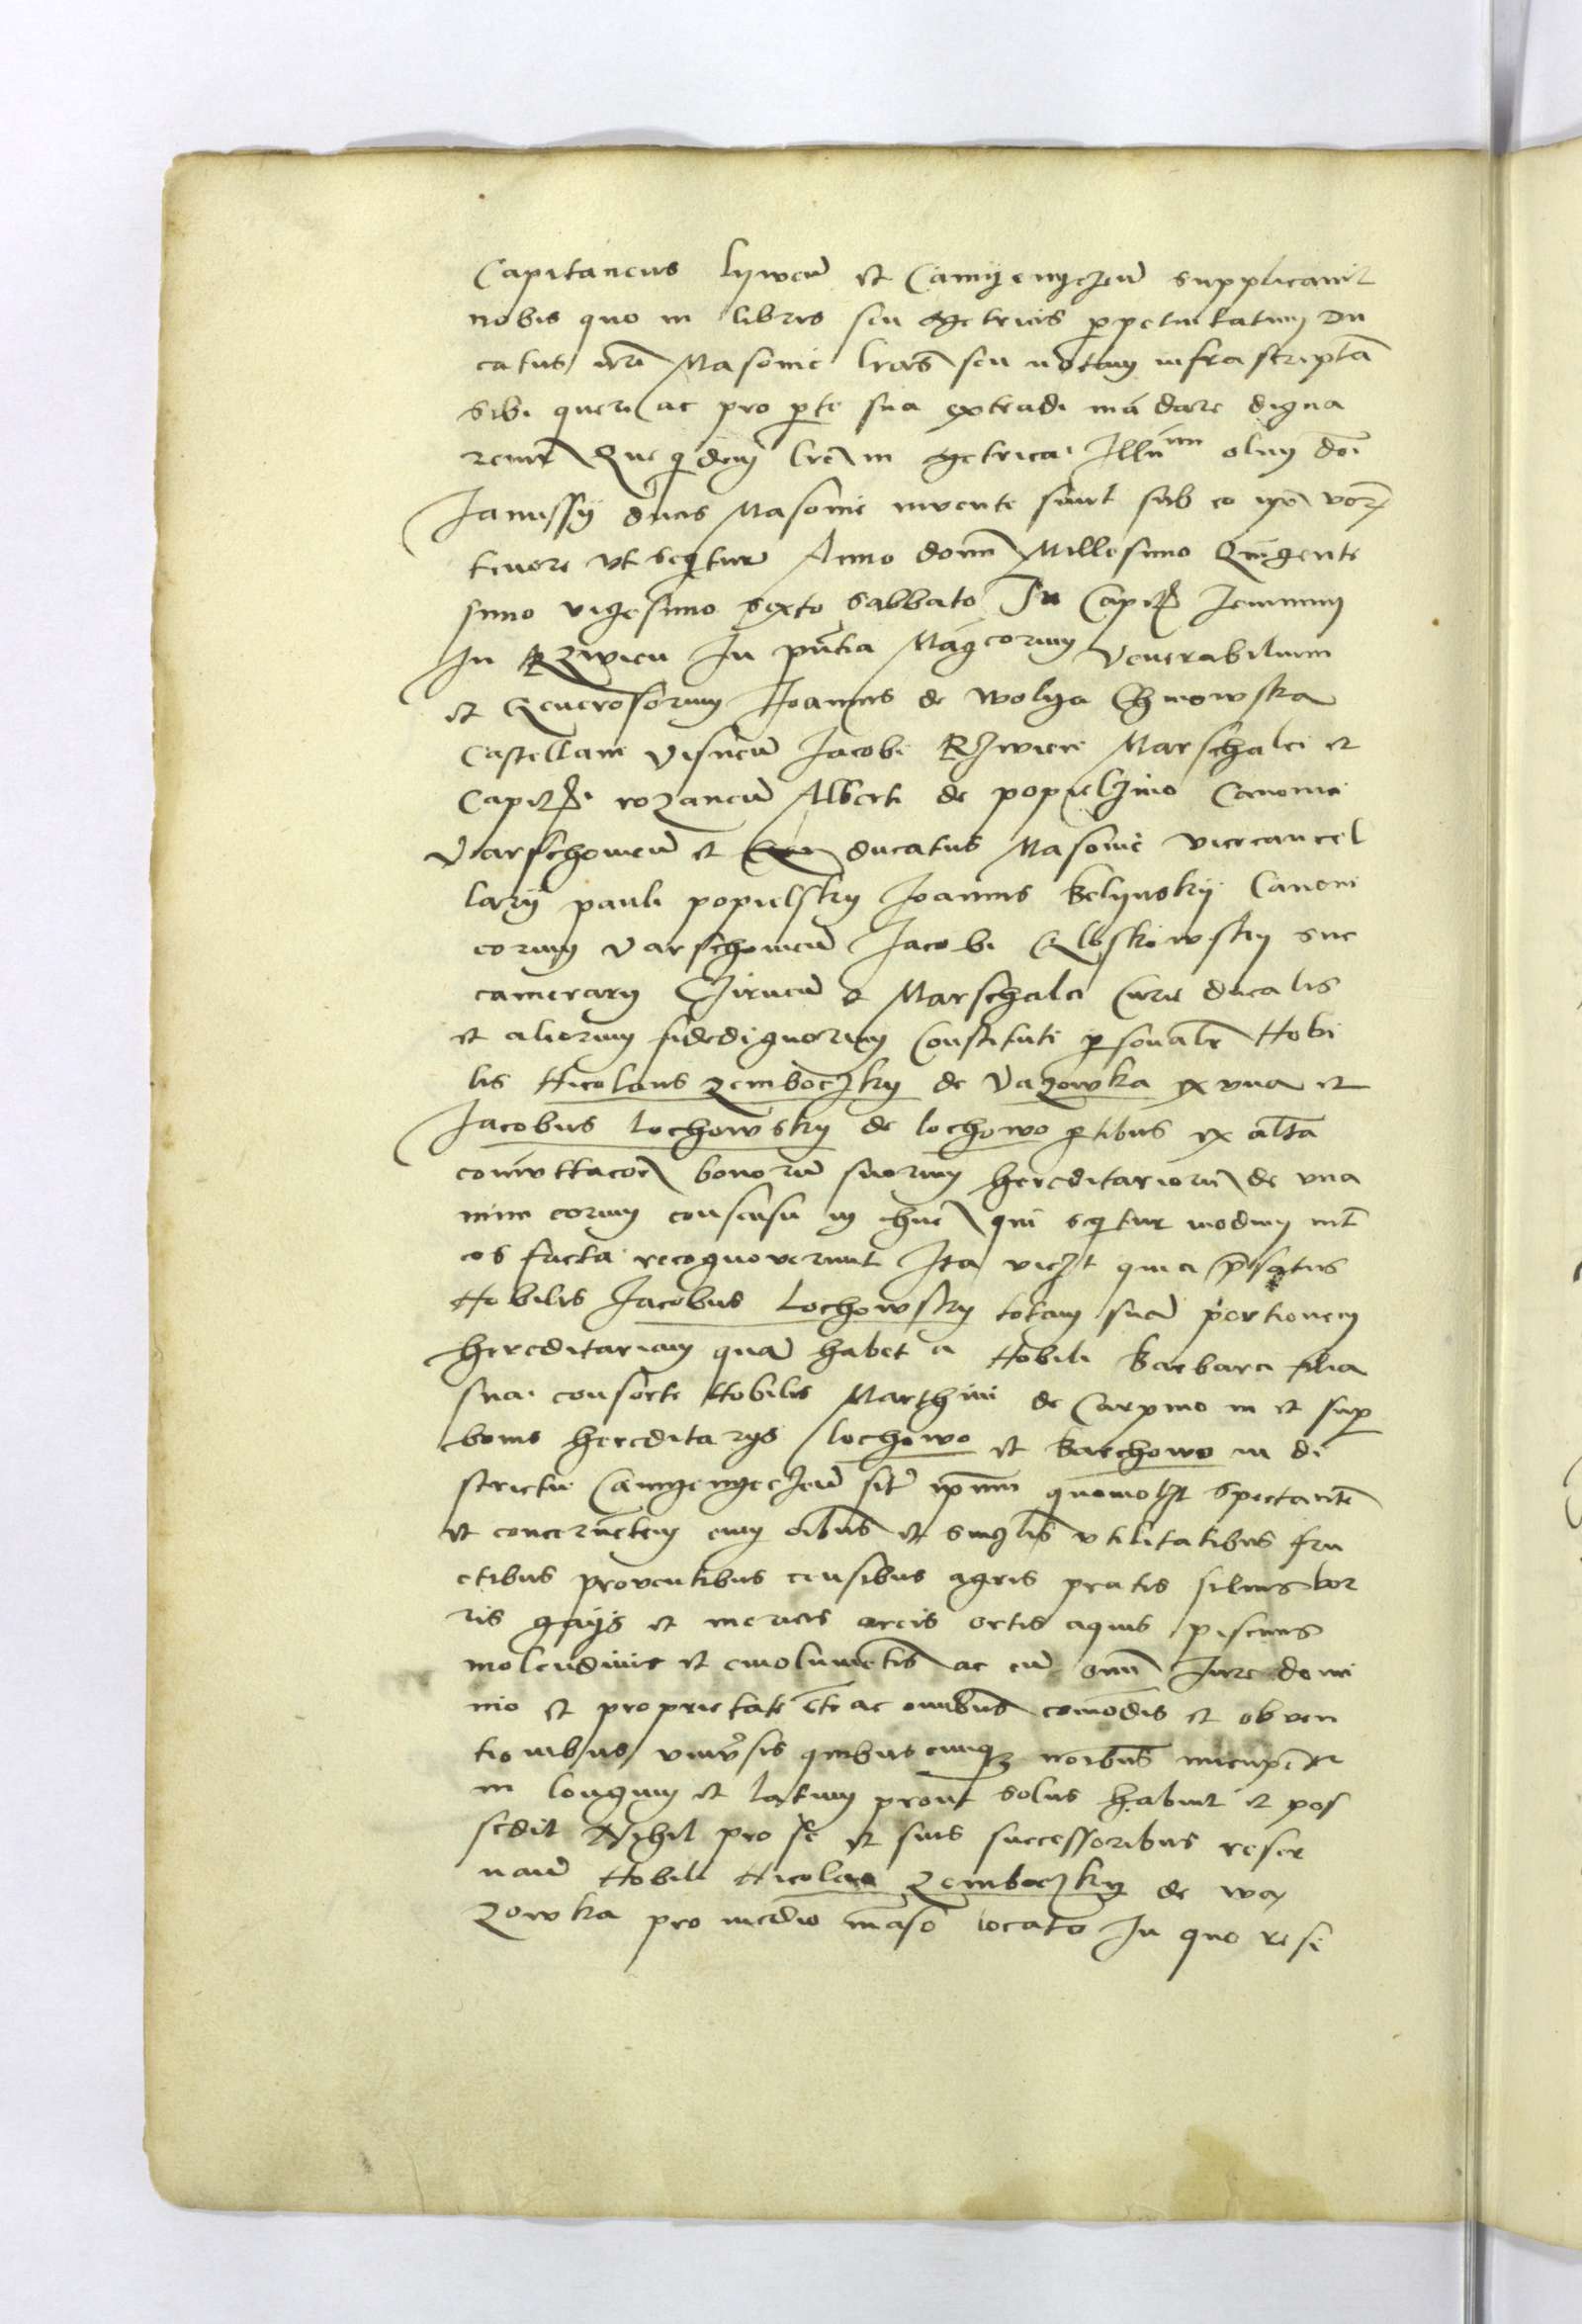 Capitaneus lywen et Camyenyeczen supplicavit
nobis quo in libris seu metricis perpetuitatum Du
catus nri Masovie lras seu notam infrascriptã
sibi queri ac pro pte sua extradi mãdare digna
remr Que quidem lre in metrica Illmi olim doi
Janussy ducis Masovie invente sunt sub eo ipo vor
tenore ut sequitur Anno domi Millesimo Quingente
simo vigesimo sexto sabbato In Capite Jeiunium
In Rzwien In pntia Magcorum Venerabilium
et Generosorum Joannis de Wolya Chynowska
Castellani Visnen Jacobi Rzwien Marschalci et
Capitei rozanen Alberti de popielzino Canonici
Varschovien et ducatus Masovie vicecancel
lary pauli popielsky Joannis Belynsky Canoni
corum Varschovien Jacobi Gloskowsky suc
camerary Czirnen et Marschalci Curie ducalis
et aliorum fidedignorum Constituti psonalr Nobi
lis Nicolaus Zemboczky de Vazowka ex una et
Jacobus Lochowsky de lochowo ptibus ex altã
comuttacoe bonorũ suorum hereditariorũ de una
nimi eorum consensu in hnc qui sequitur modum int
eos facta recognoverunt Ita viczt quia pfatus
Nobilis Jacobus Lochowsky totam suã portionem
hereditariam quã habet a Nobili Barbara filia
sua consorte Nobilis Marthini de Carpino in et sup
bonis hereditarys lochowo et Barchowo in di
strictu Camyenyeczen sitis ipnm quomolzt spectantẽ
et concernẽtem cum oibus et singlis utilitatibus fru
ctibus proventibus censibus agris pratis silvis bor
ris gays et mericis areis ortis aquis piscinis
molendinis et emolumẽtis ac cũ omi Jure domi
nio et proprietate ac omibus comodis et obven
tionibus univsis quibuscunque noibus nuncupent
in longum et latum prout solus habuit et pos
sedit Nihil pro se et suis successoribus reser
vañ Nobili Nicolao Zemboczky de wa
zowka pro medio maso locato In quo resi